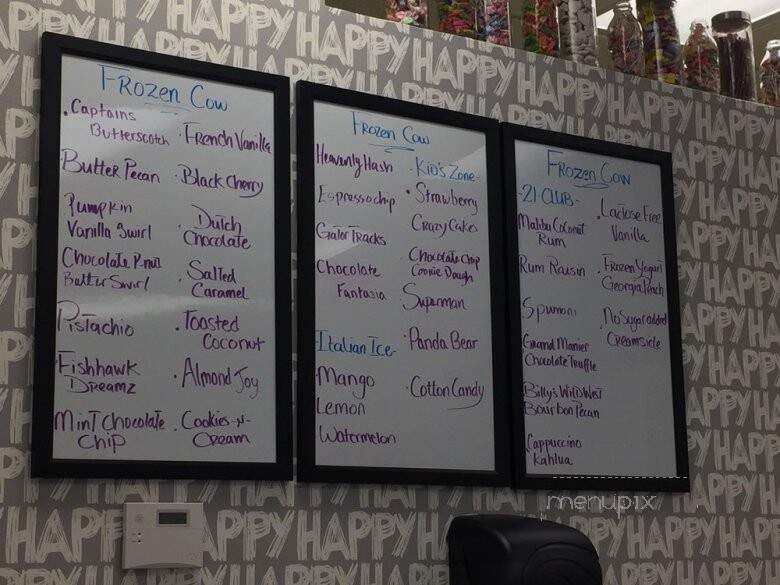 Frozen Cow
Captains
Butterscotch
Butter Pecan
Pumpkin
Vanilla Swirl
Chocolate P-nut
Butter Swirl
Pistachio
Fishhawk
Dreamz
Mint Chocolate
Chip
French Vanilla
Black Cherry
Dutch
Chocolate
Salted
Caramel
Toasted
Coconut
Almond Joy
Cookies-N-
Cream
Frozen Cow
Heavenly Hash
Espresso chip
Gator Tracks
Chocolate
Fantasia
-Italian Ice-
Mango
Lemon
Watermelon
Kid's Zone-
Strawberry
Crazy Cake
Chocolate Chip
Cookie Dough
Superman
Panda Bear
Cotton Candy
Frozen Cow
-21-CLUB-
Malibu Coconut
Rum
Rum Raisin
Spumoni
Grand Manier
Chocolate Truffle
Billy's Wild West
Bourbon Pecan
Cappuccino
Kahlua
Lactose Free
Vanilla
Frozen Yogurt
Georgia Peach
No Sugar added
Creamsicle
menupix
HAPPY HAPPY HAPPY HAPPY